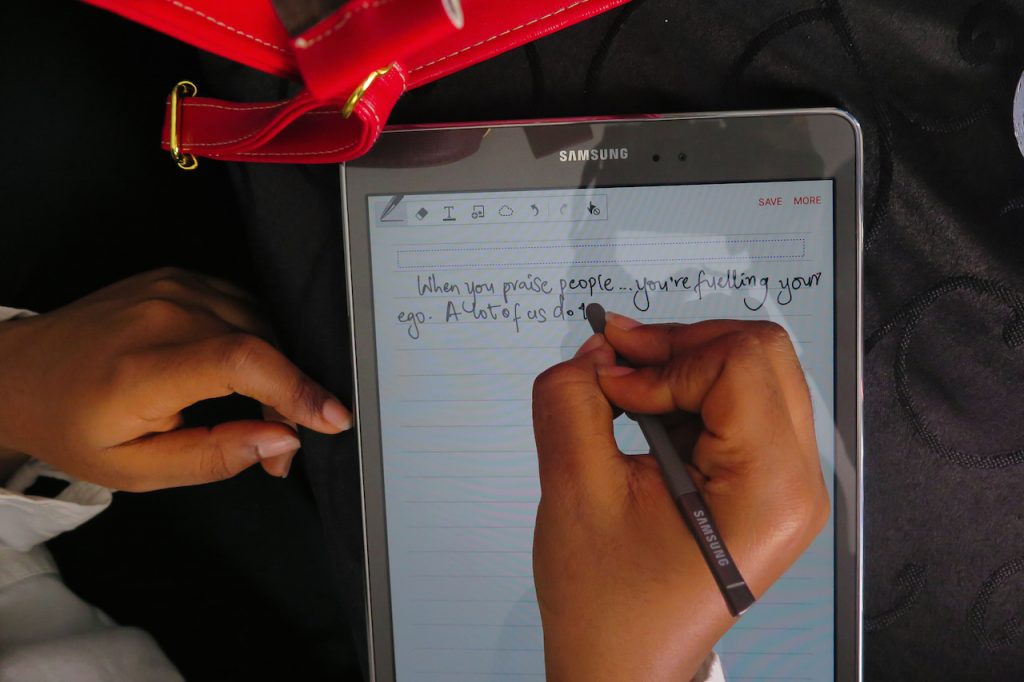 SAMSUNG
T
SAVE MORE
When you praise people...you're fuelling your
ego. A lot of us do
SAMSUNG